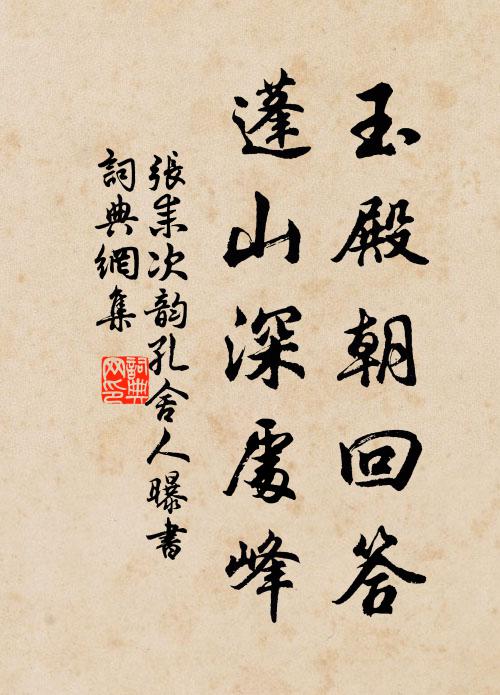 玉殿朝回答
蓬山深處峰
張耒次韵孔舍人曝書
詞典網集
詞典网印